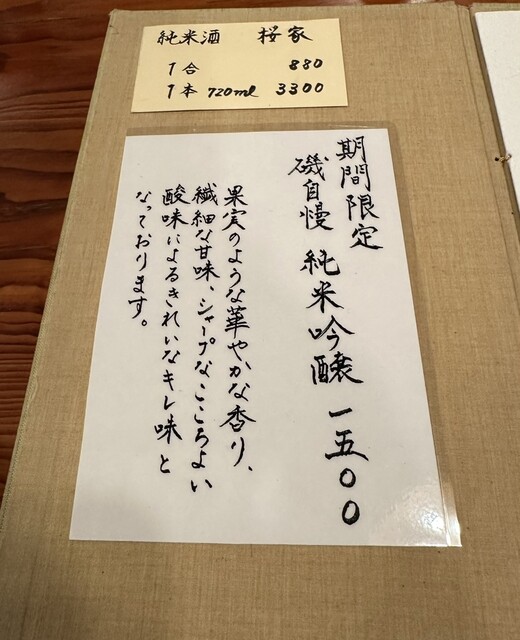 純米酒 桜家
1合 880
1本 720ml 3300
期間限定
磯自慢 純米吟醸 一五〇〇
果実のような華やかな香り、
繊細な甘味、シャープなこころよい
酸味によるきれいなキレ味と
なっております。